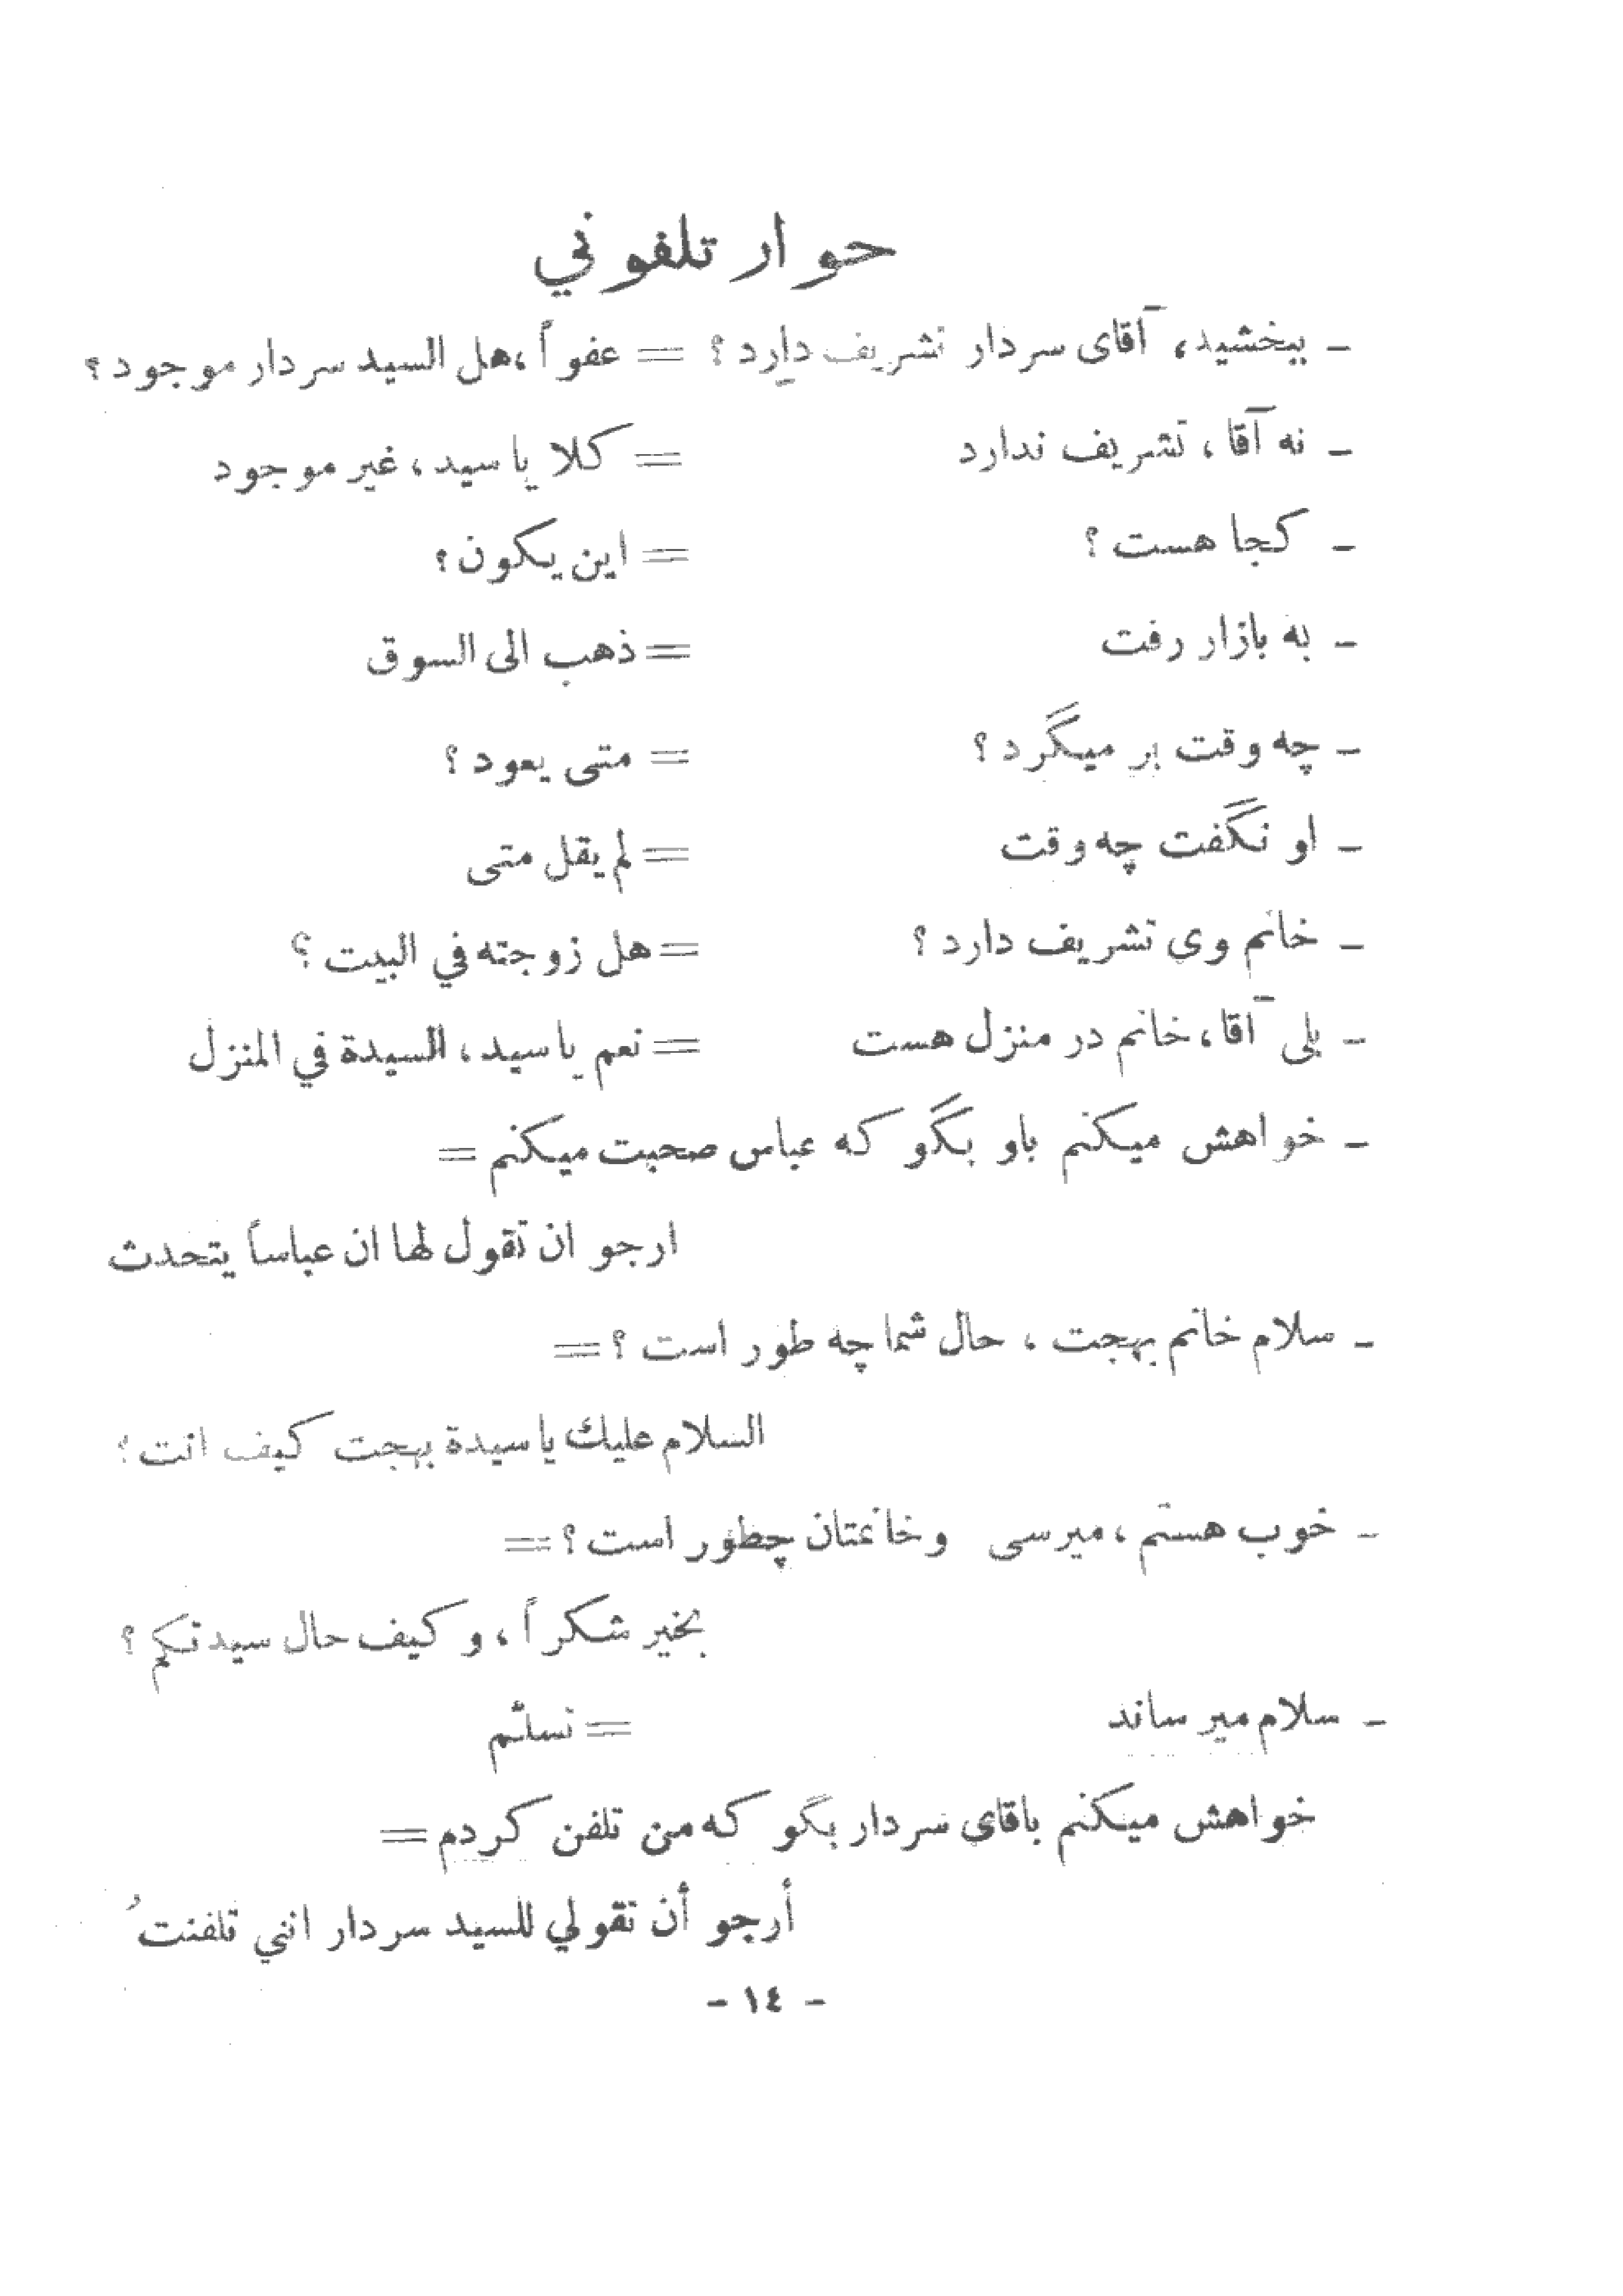 حوار تلفوني
ـ ببخشید، آقای سردار تشریف دارد ؟ = عفواً ،هل السيد سردار موجود ؟
ـ نه آقا ، تشریف ندارد = كلا يا سيد ، غير موجود
ـ کجا هست ؟ = اين يكون ؟
ـ به بازار رفت = ذهب الى السوق
ـ چه وقت بر میگرد ؟ = متى يعود ؟
ـ او نگفت چه وقت = لم يقل متى
ـ خانم وی تشریف دارد ؟ = هل زوجته في البيت ؟
ـ بلی آقا، خانم در منزل هست = نعم يا سيد ، السيدة في المنزل
ـ خواهش میکنم باو بگو که عباس صحبت میکنم =
ارجو ان تقول لها ان عباساً يتحدث
ـ سلام خانم بهجت ، حال شما چه طور است ؟ =
السلام عليك يا سيدة بهجت كيف انت ؟
ـ خوب هستم ، میرسی وخانمتان چطور است ؟ =
بخير شكراً ، و كيف حال سيدتكم ؟
ـ سلام میر ساند = تسلّم
خواهش میکنم باقای سردار بگو که من تلفن کردم =
أرجو أن تقولي للسيد سردار انني تلفنتُ
- ١٤ -